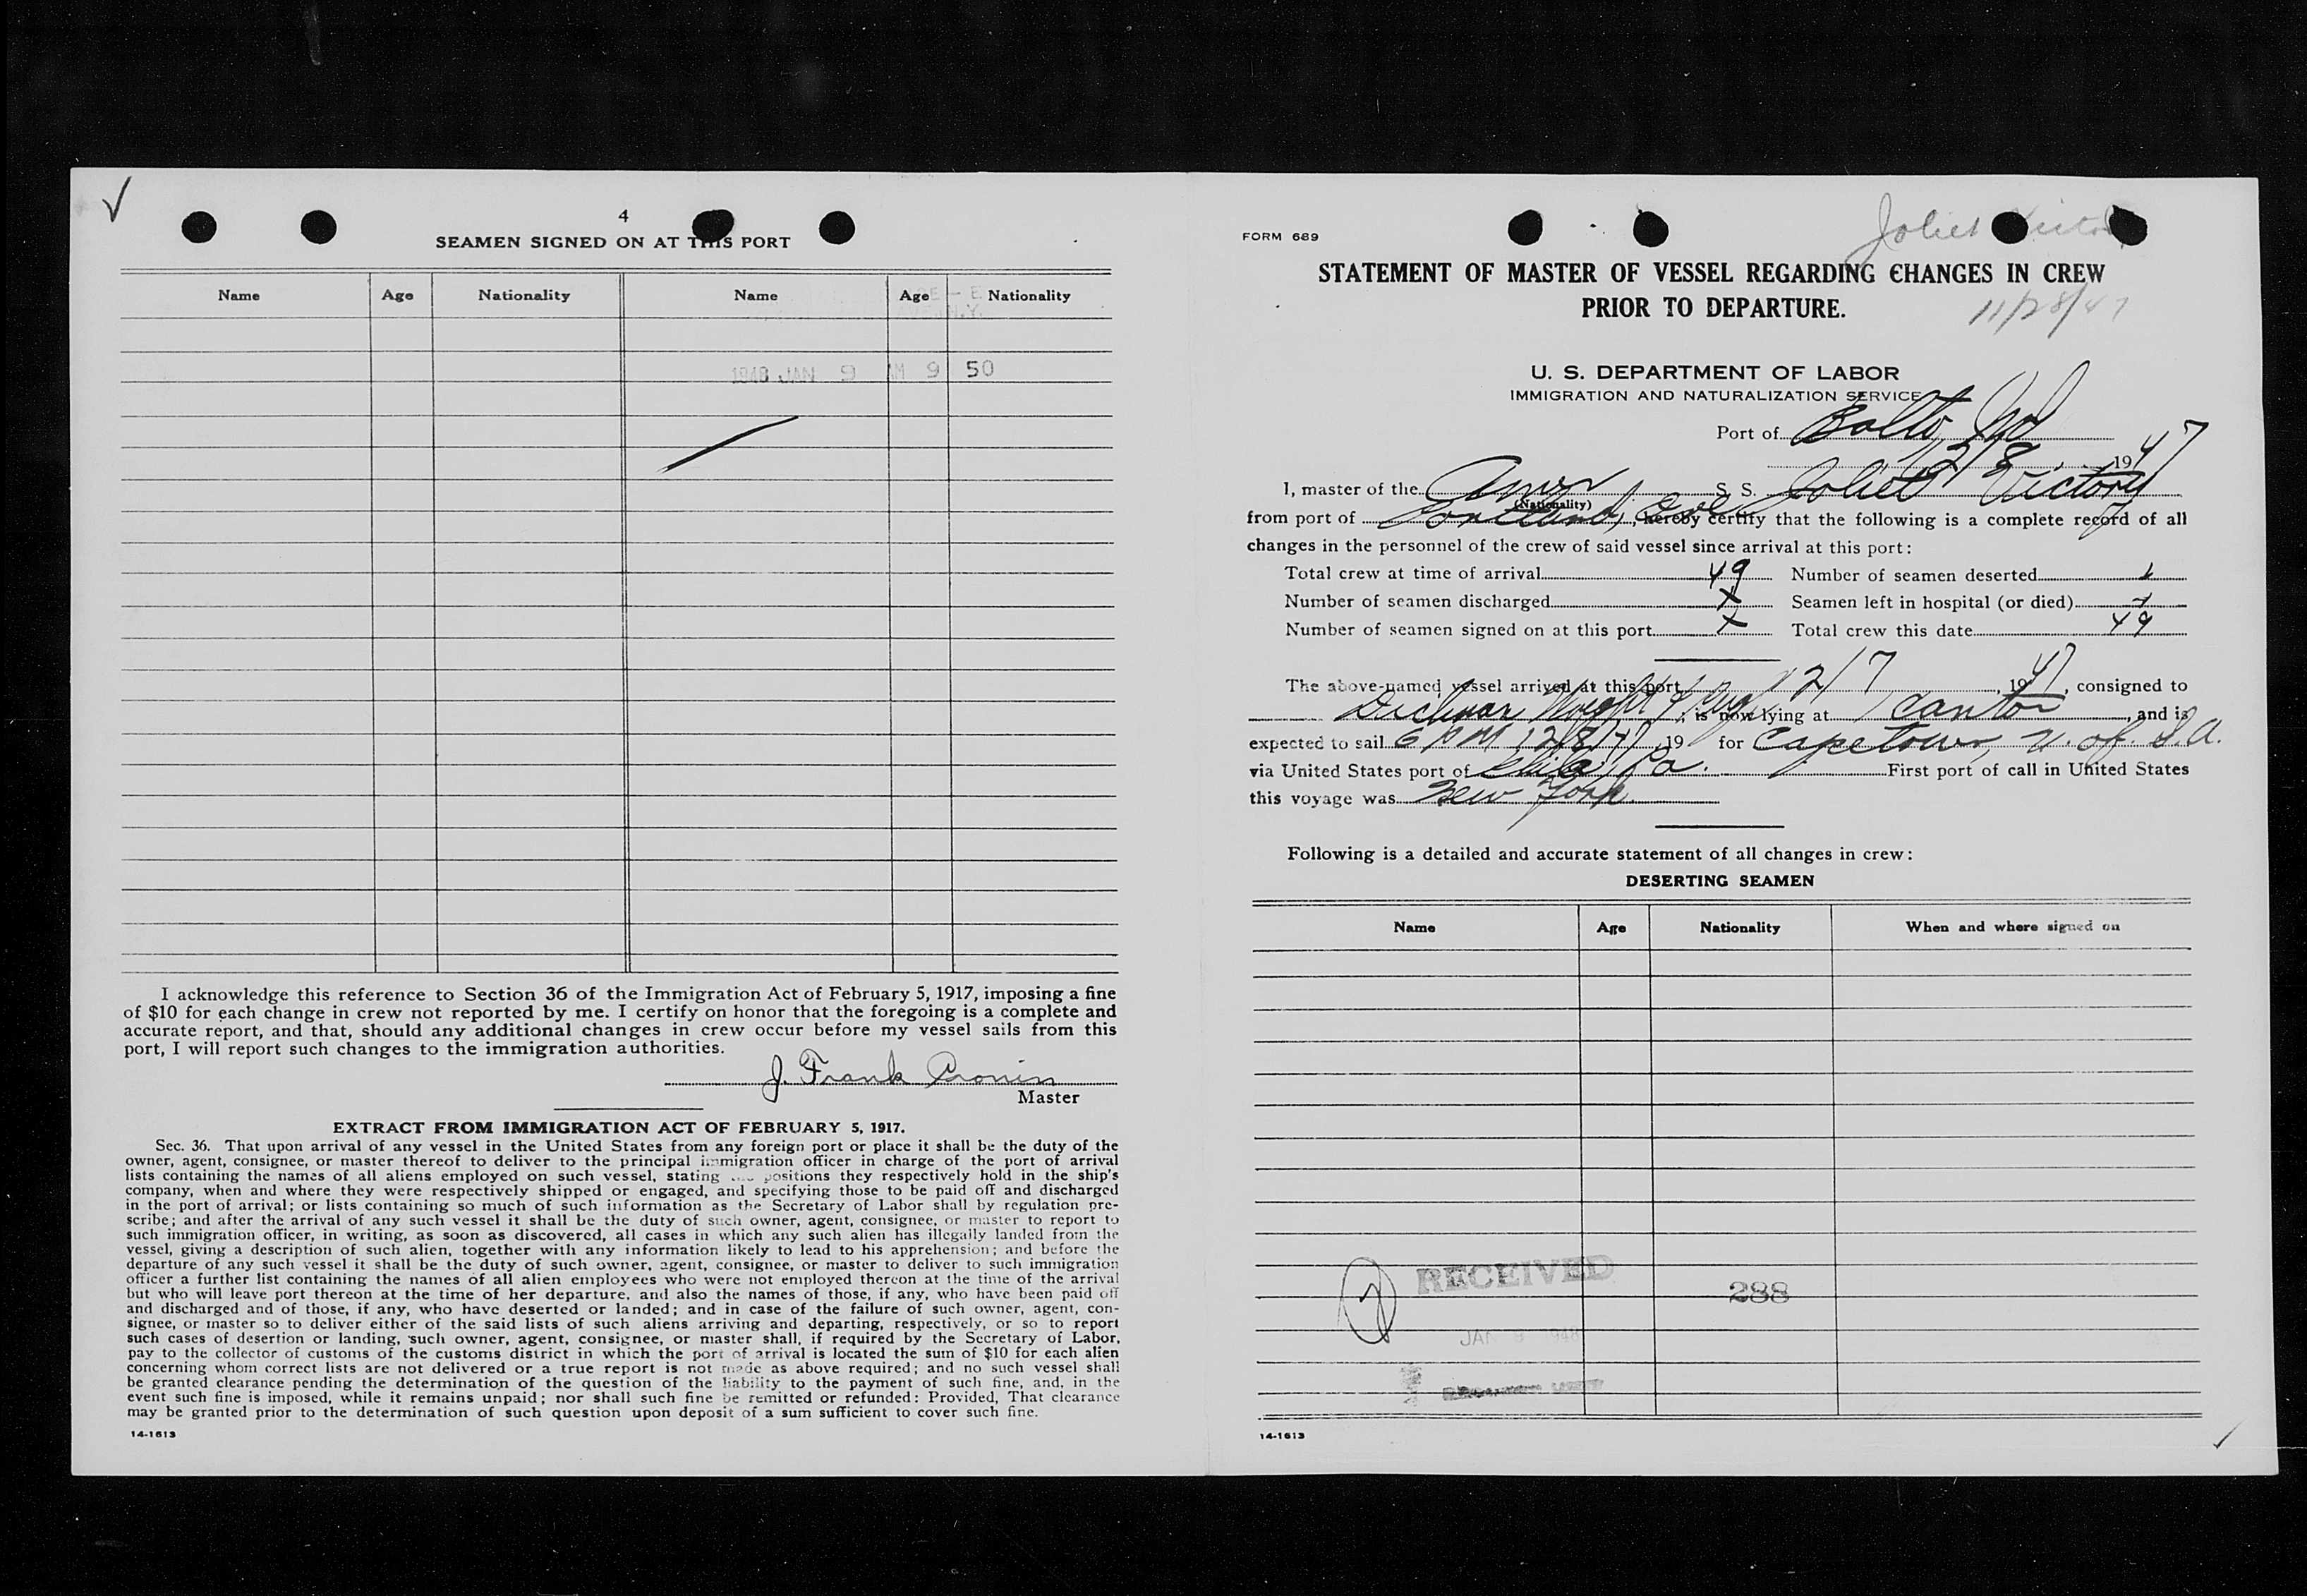 4
SEAMEN SIGNED ON AT THIS PORT
Name Age Nationality Name Age Nationality
1948 JAN 9 AM 9 50
I acknowledge this reference to Section 36 of the Immigration Act of February 5, 1917, imposing a fine
of $10 for each change in crew not reported by me. I certify on honor that the foregoing is a complete and
accurate report, and that, should any additional changes in crew occur before my vessel sails from this
port, I will report such changes to the immigration authorities.
J. Frank Cronin
Master
EXTRACT FROM IMMIGRATION ACT OF FEBRUARY 5, 1917.
Sec. 36. That upon arrival of any vessel in the United States from any foreign port or place it shall be the duty of the
owner, agent, consignee, or master thereof to deliver to the principal immigration officer in charge of the port of arrival
lists containing the names of all aliens employed on such vessel, stating the positions they respectively hold in the ship's
company, when and where they were respectively shipped or engaged, and specifying those to be paid off and discharged
in the port of arrival; or lists containing so much of such information as the Secretary of Labor shall by regulation pre-
scribe; and after the arrival of any such vessel it shall be the duty of such owner, agent, consignee, or master to report to
such immigration officer, in writing, as soon as discovered, all cases in which any such alien has illegally landed from the
vessel, giving a description of such alien, together with any information likely to lead to his apprehension; and before the
departure of any such vessel it shall be the duty of such owner, agent, consignee, or master to deliver to such immigration
officer a further list containing the names of all alien employees who were not employed thereon at the time of the arrival
but who will leave port thereon at the time of her departure, and also the names of those, if any, who have been paid off
and discharged and of those, if any, who have deserted or landed; and in case of the failure of such owner, agent, con-
signee, or master so to deliver either of the said lists of such aliens arriving and departing, respectively, or so to report
such cases of desertion or landing, such owner, agent, consignee, or master shall, if required by the Secretary of Labor,
pay to the collector of customs of the customs district in which the port of arrival is located the sum of $10 for each alien
concerning whom correct lists are not delivered or a true report is not made as above required; and no such vessel shall
be granted clearance pending the determination of the question of the liability to the payment of such fine, and, in the
event such fine is imposed, while it remains unpaid; nor shall such fine be remitted or refunded: Provided, That clearance
may be granted prior to the determination of such question upon deposit of a sum sufficient to cover such fine.
14-1613
Joliet Victory
FORM 689
STATEMENT OF MASTER OF VESSEL REGARDING CHANGES IN CREW
PRIOR TO DEPARTURE.
11/28/47
U. S. DEPARTMENT OF LABOR
IMMIGRATION AND NATURALIZATION SERVICE
Port of Balto, Md
12/8 1947
I, master of the Amer S. S. Joliet Victory
(Nationality)
from port of Portland, Ore, hereby certify that the following is a complete record of all
changes in the personnel of the crew of said vessel since arrival at this port:
Total crew at time of arrival 49 Number of seamen deserted
Number of seamen discharged X Seamen left in hospital (or died)
Number of seamen signed on at this port X Total crew this date 49
The above-named vessel arrived at this port 12/7, 1947, consigned to
Dichman Wright & Pugh; is now lying at Canton, and is
expected to sail 6 PM 12/8/47, 19 for Capetown, U. of S.A.
via United States port of Phila, Pa. First port of call in United States
this voyage was New York.
Following is a detailed and accurate statement of all changes in crew:
DESERTING SEAMEN
Name Age Nationality When and where signed on
RECEIVED
288
JAN 9 1948
14-1613